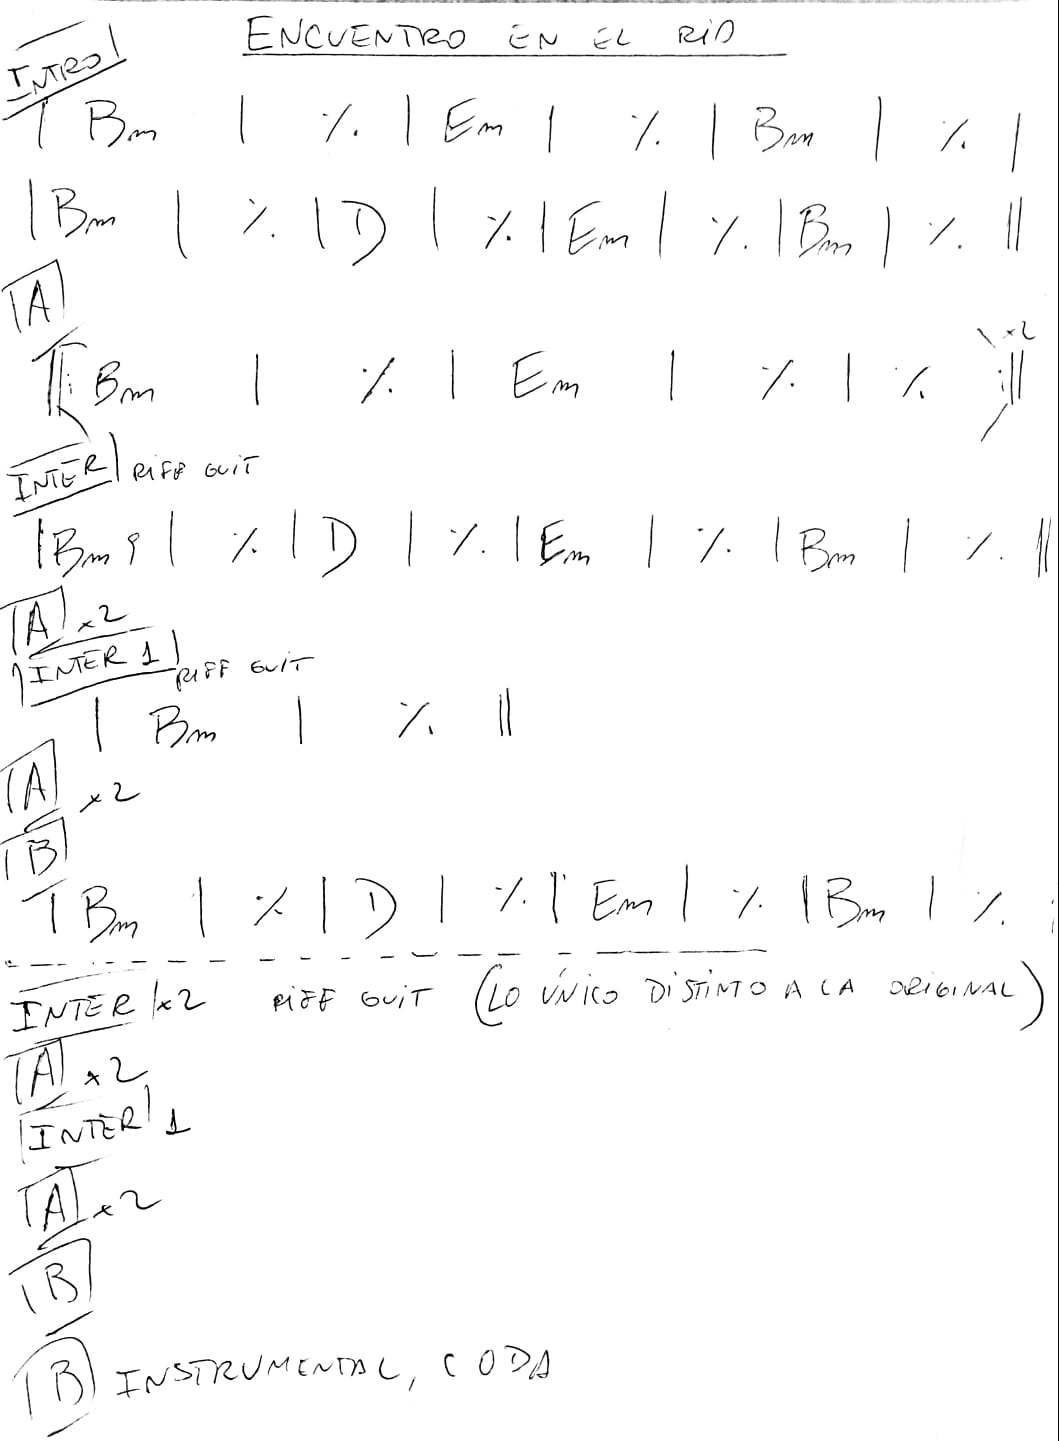 ENCUENTRO EN EL RIO
INTRO
| Bm | % | Em | % | Bm | % |
| Bm | % | D | % | Em | % | Bm | % ||
A
||: Bm | % | Em | % | % :|| x2
INTER RIFF GUIT
| Bm | % | D | % | Em | % | Bm | % ||
A x2
INTER 1 RIFF GUIT
| Bm | % ||
A x2
B
| Bm | % | D | % | Em | % | Bm | %
INTER x2 RIFF GUIT (LO ÚNICO DISTINTO A LA ORIGINAL)
A x2
INTER 1
A x2
B
B INSTRUMENTAL, CODA